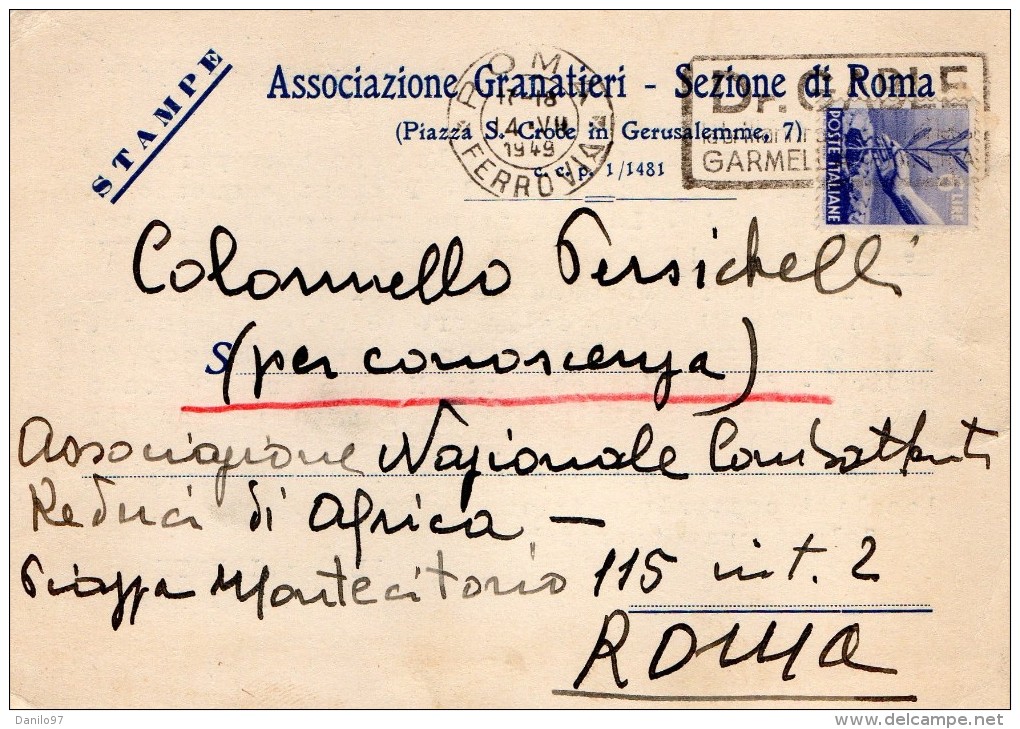 STAMPE
Associazione Granatieri - Sezione di Roma
(Piazza S. Croce in Gerusalemme, 7)
c. c. p. 1/1481
ROMA
17-18
4·VII
1949
FERROVIA
Dr.
GARMEL
POSTE ITALIANE
6 LIRE
Colonnello Persichelli
S
(per conoscenza)
Associazione Nazionale Combattenti
Reduci di Africa —
Piazza Montecitorio 115 int. 2
ROMA
Danilo97
www.delcampe.net